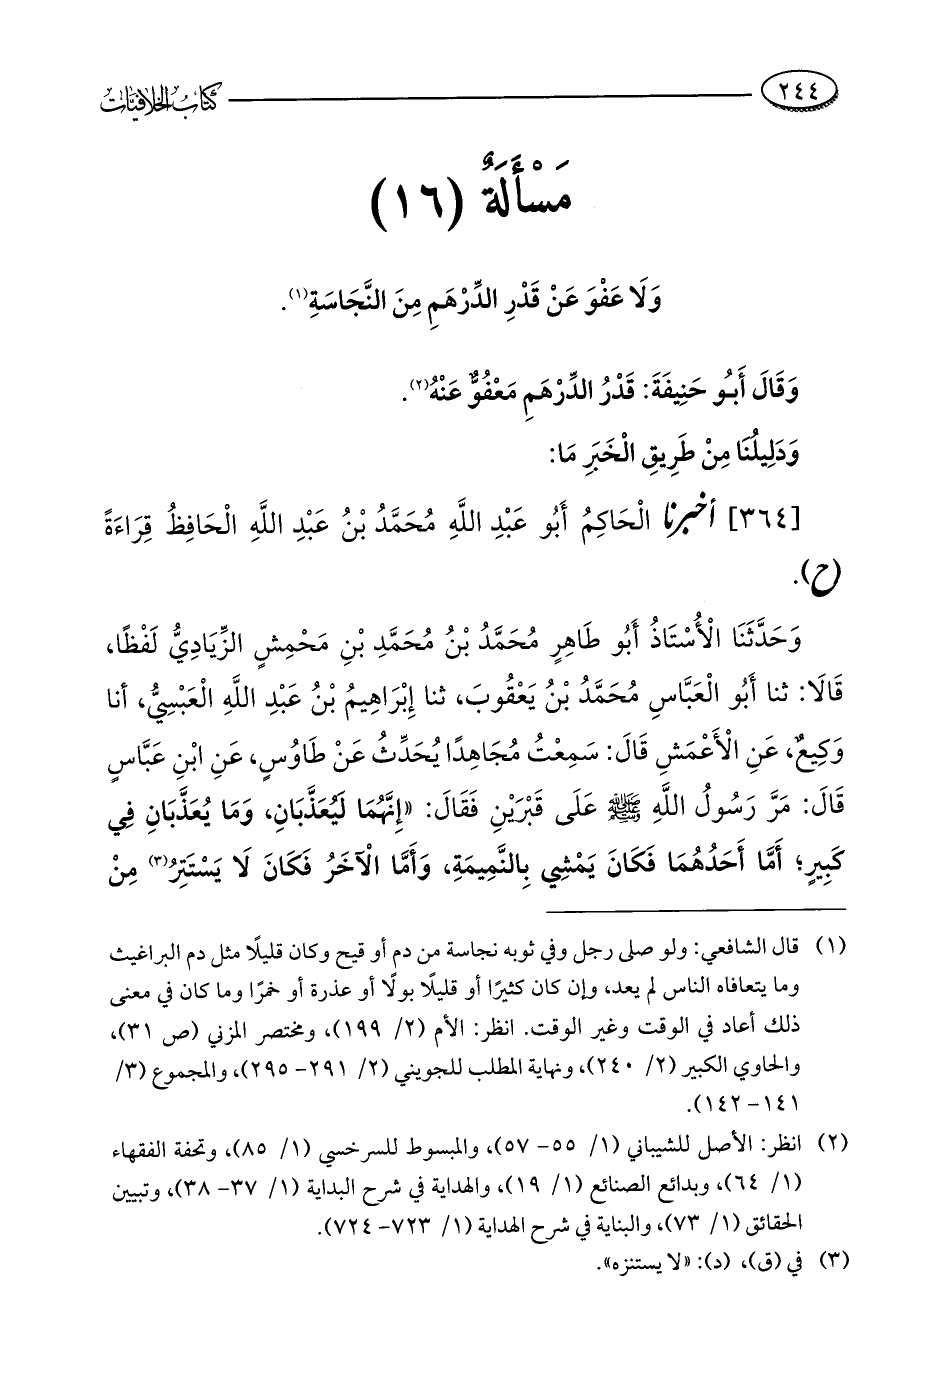 ٢٤٤
كتاب الخلافيات
مَسْأَلَةٌ (١٦)
وَلَا عَفْوَ عَنْ قَدْرِ الدِّرْهَمِ مِنَ النَّجَاسَةِ(١).
وَقَالَ أَبُو حَنِيفَةَ: قَدْرُ الدِّرْهَمِ مَعْفُوٌّ عَنْهُ(٢).
وَدَلِيلُنَا مِنْ طَرِيقِ الْخَبَرِ مَا:
[٣٦٤] أخبرنا الْحَاكِمُ أَبُو عَبْدِ اللَّهِ مُحَمَّدُ بْنُ عَبْدِ اللَّهِ الْحَافِظُ قِرَاءَةً
(ح).
وَحَدَّثَنَا الْأُسْتَاذُ أَبُو طَاهِرٍ مُحَمَّدُ بْنُ مُحَمَّدِ بْنِ مَحْمِشٍ الزِّيَادِيُّ لَفْظًا،
قَالَا: ثنا أَبُو الْعَبَّاسِ مُحَمَّدُ بْنُ يَعْقُوبَ، ثنا إِبْرَاهِيمُ بْنُ عَبْدِ اللَّهِ الْعَبْسِيُّ، أنا
وَكِيعٌ، عَنِ الْأَعْمَشِ قَالَ: سَمِعْتُ مُجَاهِدًا يُحَدِّثُ عَنْ طَاوُسٍ، عَنِ ابْنِ عَبَّاسٍ
قَالَ: مَرَّ رَسُولُ اللَّهِ ﷺ عَلَى قَبْرَيْنِ فَقَالَ: «إِنَّهُمَا لَيُعَذَّبَانِ، وَمَا يُعَذَّبَانِ فِي
كَبِيرٍ؛ أَمَّا أَحَدُهُمَا فَكَانَ يَمْشِي بِالنَّمِيمَةِ، وَأَمَّا الْآخَرُ فَكَانَ لَا يَسْتَتِرُ(٣) مِنْ
(١) قال الشافعي: ولو صلى رجل وفي ثوبه نجاسة من دم أو قيح وكان قليلًا مثل دم البراغيث
وما يتعافاه الناس لم يعد، وإن كان كثيرًا أو قليلًا بولًا أو عذرة أو خمرًا وما كان في معنى
ذلك أعاد في الوقت وغير الوقت. انظر: الأم (٢/ ١٩٩)، ومختصر المزني (ص ٣١)،
والحاوي الكبير (٢/ ٢٤٠)، ونهاية المطلب للجويني (٢/ ٢٩١- ٢٩٥)، والمجموع (٣/
١٤١- ١٤٢).
(٢) انظر: الأصل للشيباني (١/ ٥٥- ٥٧)، والمبسوط للسرخسي (١/ ٨٥)، وتحفة الفقهاء
(١/ ٦٤)، وبدائع الصنائع (١/ ١٩)، والهداية في شرح البداية (١/ ٣٧- ٣٨)، وتبيين
الحقائق (١/ ٧٣)، والبناية في شرح الهداية (١/ ٧٢٣- ٧٢٤).
(٣) في (ق)، (د): «لا يستنزه».